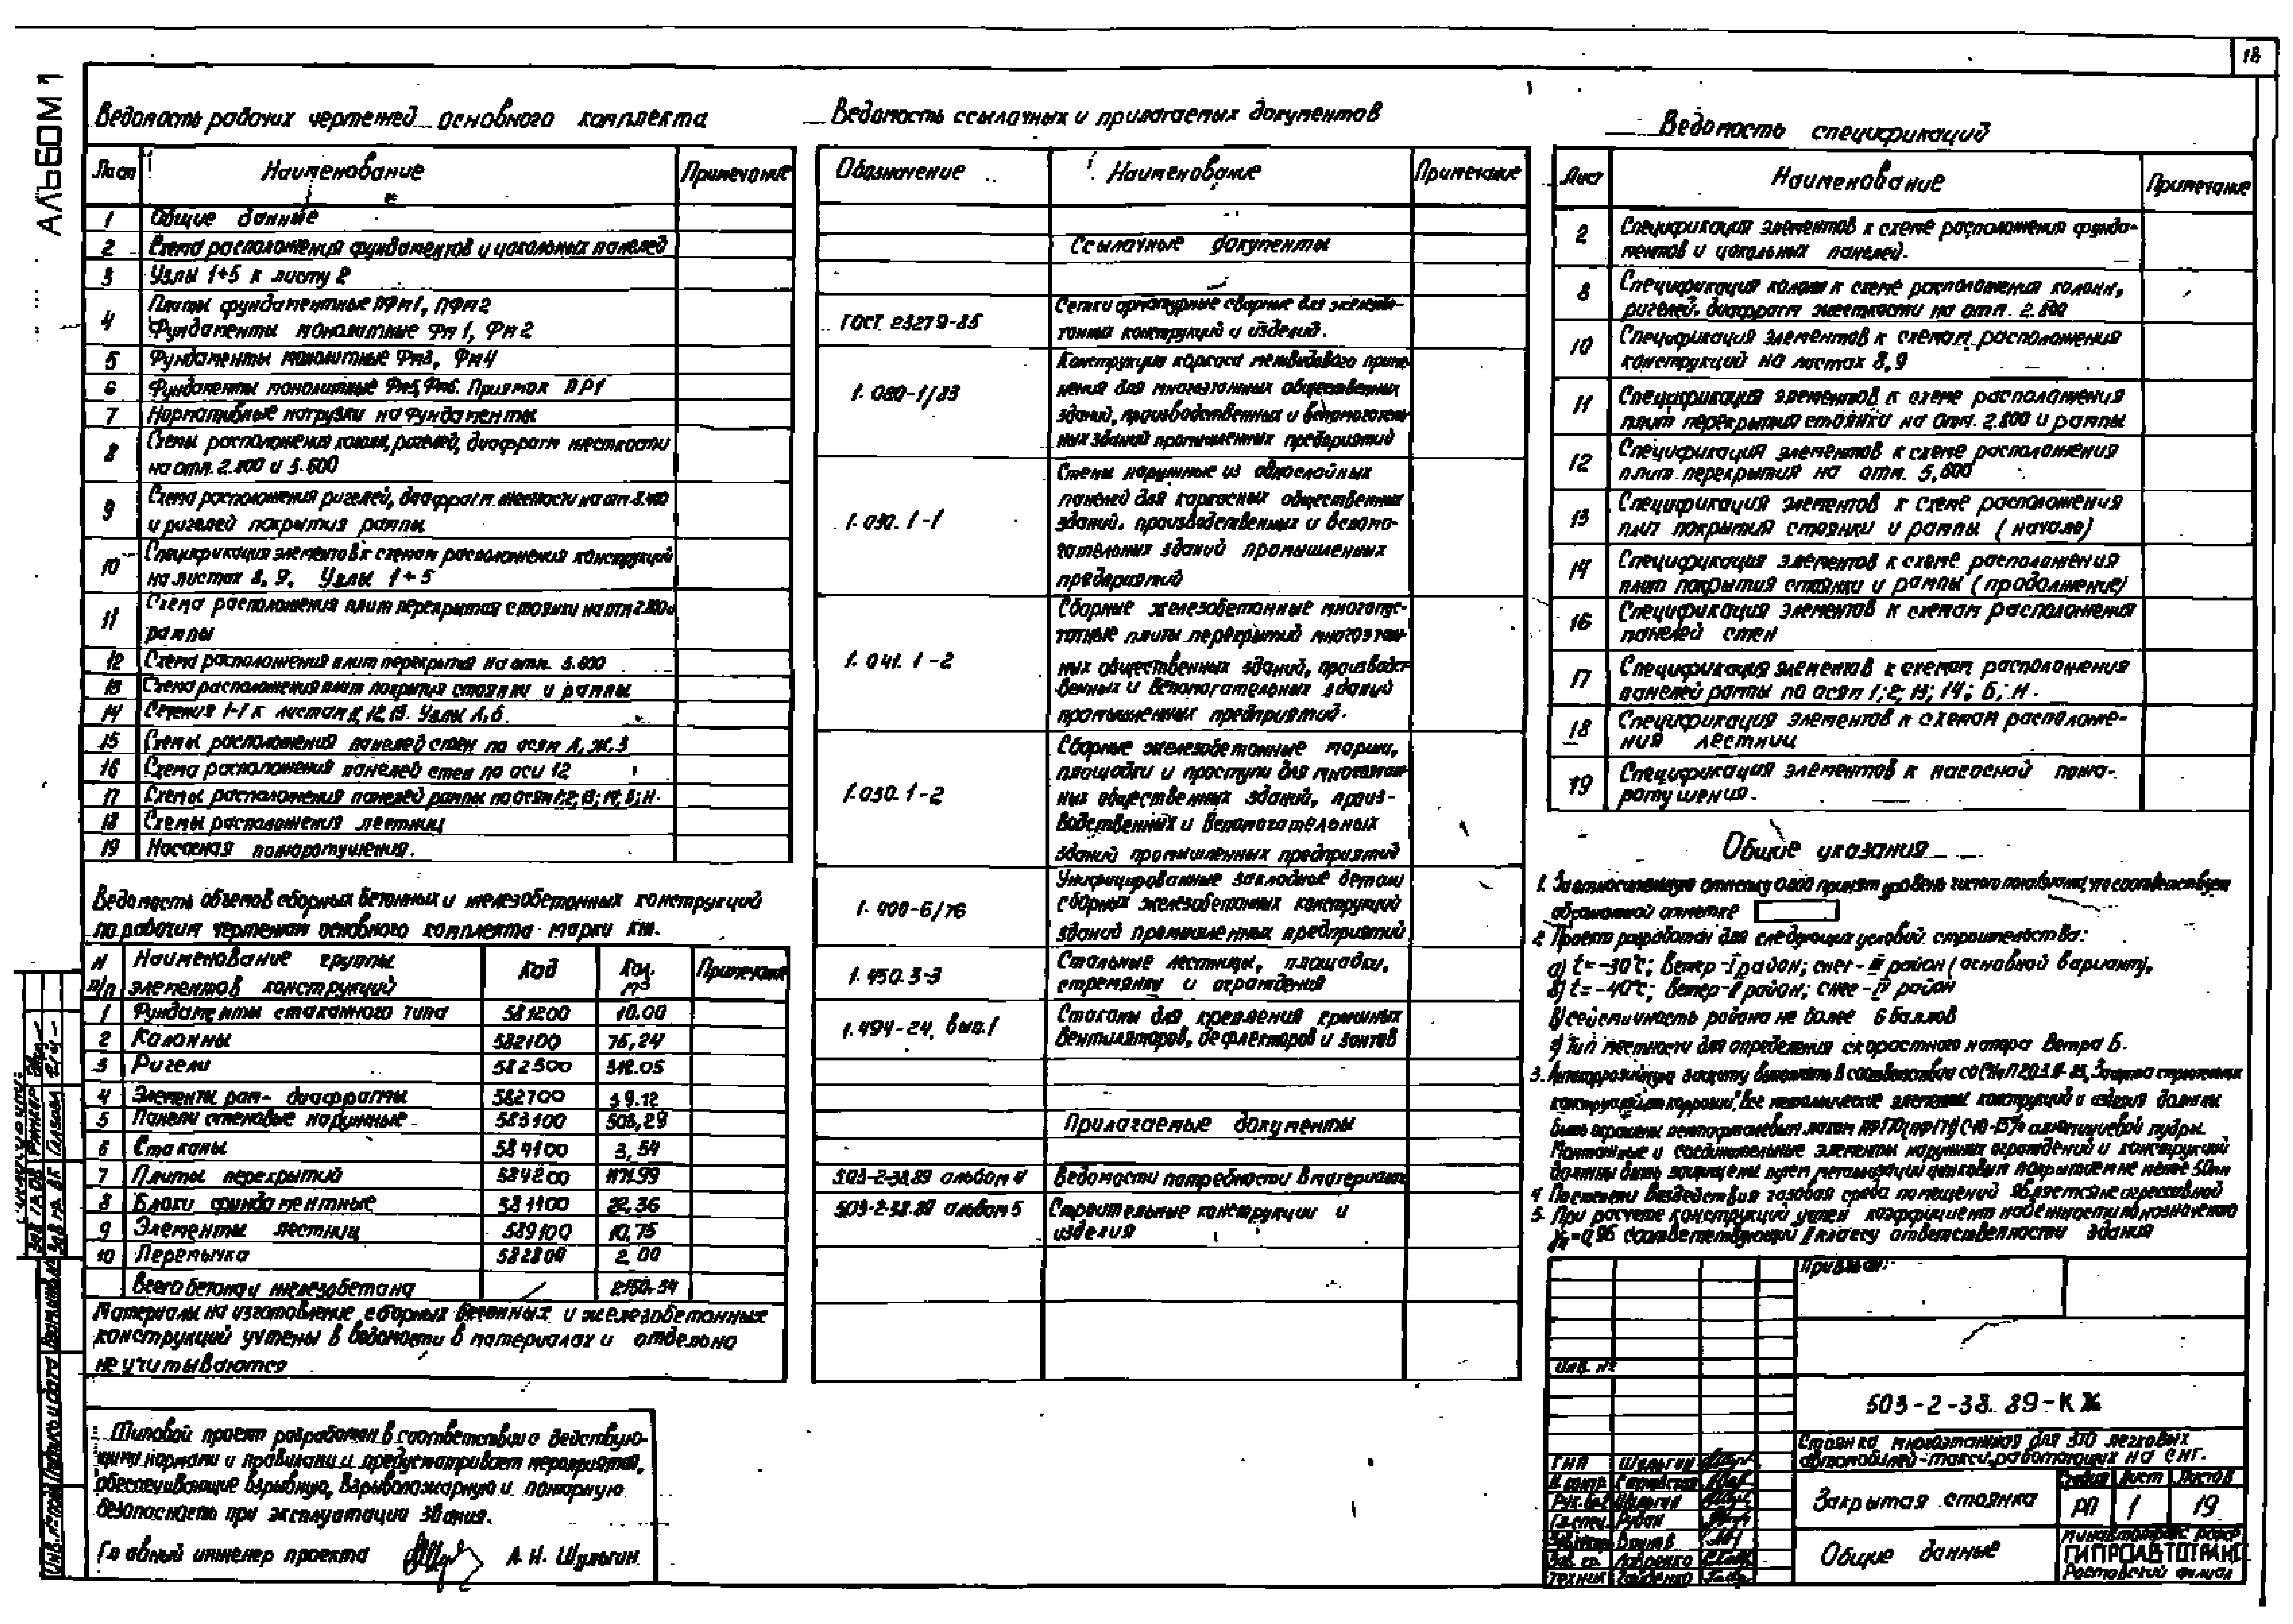 18
АЛЬБОМ 1
Ведомость рабочих чертежей основного комплекта
Лист Наименование Примечание
1 Общие данные
2 Схема расположения фундаментов и цокольных панелей
3 Узлы 1÷5 к листу 2
4 Плиты фундаментные ПФм1, ПФм2
Фундаменты монолитные Фм1, Фм2
5 Фундаменты монолитные Фм3, Фм4
6 Фундаменты монолитные Фм5, Фм6. Приямок ПР1
7 Нормативные нагрузки на фундаменты
8 Схемы расположения колонн, ригелей, диафрагм жесткости
на отм. 2.800 и 5.600
9 Схема расположения ригелей, диафрагм жесткости на отм 8.400
и ригелей покрытия рампы
10 Спецификация элементов к схемам расположения конструкций
на листах 8, 9. Узлы 1÷5
11 Схема расположения плит перекрытия стоянки на отм 2.800 и
рампы
12 Схема расположения плит перекрытия на отм. 5.600
13 Схема расположения плит покрытия стоянки и рампы
14 Сечения 1-1 к листам 11, 12, 13. Узлы А, Б.
15 Схемы расположения панелей стен по осям А, Ж, 3
16 Схема расположения панелей стен по оси 12
17 Схемы расположения панелей рампы по осям 1; 2; 13; 14; Б; И.
18 Схемы расположения лестниц
19 Насосная пожаротушения.
Ведомость объемов сборных бетонных и железобетонных конструкций
по рабочим чертежам основного комплекта марки КЖ.
N п/п Наименование группы элементов конструкций Код Кол. м3 Примечание
1 Фундаменты стаканного типа 581200 10.00
2 Колонны 582100 76,24
3 Ригели 582500 318.05
4 Элементы рам- диафрагмы 582700 39.12
5 Панели стеновые наружные 583100 503,29
6 Стаканы 584100 3,54
7 Плиты перекрытий 584200 1171.99
8 Блоки фундаментные 581100 22,36
9 Элементы лестниц 589100 10,75
10 Перемычка 582800 2,00
Всего бетона и железобетона 2150.34
Материалы на изготовление сборных бетонных и железобетонных
конструкций учтены в ведомости в материалах и отдельно
не учитываются
Типовой проект разработан в соответствии с действую-
щими нормами и правилами и предусматривает мероприятия,
обеспечивающие взрывную, взрывопожарную и пожарную
безопасность при эксплуатации здания.
Главный инженер проекта А. Н. Шульгин
Ведомость ссылочных и прилагаемых документов
Обозначение Наименование Примечание
Ссылочные документы
ГОСТ 23279-85 Сетки арматурные сварные для железобе-
тонных конструкций и изделий.
1. 020-1/83 Конструкции каркаса межвидового приме-
нения для многоэтажных общественных
зданий, производственных и вспомогатель-
ных зданий промышленных предприятий
1. 030. 1-1 Стены наружные из однослойных
панелей для каркасных общественных
зданий, производственных и вспомо-
гательных зданий промышленных
предприятий
1. 041. 1-2 Сборные железобетонные многопус-
тотные плиты перекрытий многоэтаж-
ных общественных зданий, производст-
венных и вспомогательных зданий
промышленных предприятий.
1.050. 1-2 Сборные железобетонные марши,
площадки и проступи для многоэтаж-
ных общественных зданий, произ-
водственных и вспомогательных
зданий промышленных предприятий
1. 400-6/76 Унифицированные закладные детали
сборных железобетонных конструкций
зданий промышленных предприятий
1. 450. 3-3 Стальные лестницы, площадки,
стремянки и ограждения
1.494-24, вып.1 Стаканы для крепления крышных
вентиляторов, дефлекторов и зонтов
Прилагаемые документы
503-2-38.89 альбом 4 Ведомости потребности в материалах
503-2-38.89 альбом 5 Строительные конструкции и
изделия
Ведомость спецификаций
Лист Наименование Примечание
2 Спецификация элементов к схеме расположения фунда-
ментов и цокольных панелей.
8 Спецификация колонн к схеме расположения колонн,
ригелей, диафрагм жесткости на отм. 2.800
10 Спецификация элементов к схемам расположения
конструкций на листах 8, 9
11 Спецификация элементов к схеме расположения
плит перекрытия стоянки на отм. 2.800 и рампы
12 Спецификация элементов к схеме расположения
плит перекрытия на отм. 5,600
13 Спецификация элементов к схеме расположения
плит покрытия стоянки и рампы (начало)
14 Спецификация элементов к схеме расположения
плит покрытия стоянки и рампы (продолжение)
16 Спецификация элементов к схемам расположения
панелей стен
17 Спецификация элементов к схемам расположения
панелей рампы по осям 1; 2; 13; 14; Б; И.
18 Спецификация элементов к схемам расположе-
ния лестниц
19 Спецификация элементов к насосной пожа-
ротушения.
Общие указания
1. За относительную отметку 0.000 принят уровень чистого пола, что соответствует
абсолютной отметке
2. Проект разработан для следующих условий строительства:
а) t=-30°С; ветер-I район; снег-III район (основной вариант),
б) t=-40°С; ветер-II район; снег-IV район
в) сейсмичность района не более 6 баллов
г) Тип местности для определения скоростного напора ветра Б.
3. Антикоррозийную защиту выполнить в соответствии со СНиП 2.03.11-85 "Защита строительных
конструкций от коррозии". Все металлические элементы конструкций и изделия должны
быть окрашены пентафталевым лаком с 10-15% алюминиевой пудры.
Монтажные и соединительные элементы наружных ограждений и конструкций
должны быть защищены путем металлизации цинковым покрытием не менее 50мк
4. По степени воздействия газовая среда помещений является не агрессивной
5. При расчете конструкций учтен коэффициент надежности по назначению
=0,95 соответствующий II классу ответственности здания
Привязан:
Инв. №
503-2-38. 89-КЖ
Стоянка многоэтажная для 370 легковых
автомобилей-такси, работающих на СНГ.
ГИП Шульгин
Н.контр
Рук.бр. Шульгин
Гл.спец. Рубан
Зав. гр. Лавренко
Техник
Закрытая стоянка
Стадия Лист Листов
РП 1 19
Общие данные
ГИПРОАВТОТРАНС
Ростовский филиал